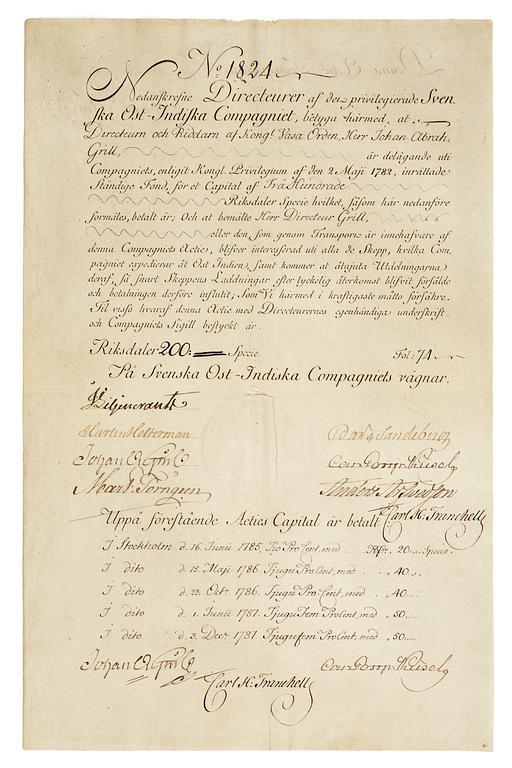 No. 1824
Nedanskrefne Directeurer af det privilegierade Sven-
ska Ost-Indiska Compagniet, betyga härmed, at
Directeurn och Riddarn af Kongl. Vasa Orden, Herr Johan Abrah:
Grill, är delägande uti
Compagniets, enligit Kongl. Privilegium af den 2 Maji 1782, inrättade
Ständige Fond, för et Capital af Två Hundrade
Riksdaler Specie hvilket, såsom här nedanföre
formäles, betalt är; Och at bemälte Herr Directeur Grill,
eller den som genom Transporte är innehafvare af
denna Compagniets Actie, blifver interesserad uti alla de Skepp, hvilka Com-
pagniet expedierar åt Ost Indien, samt kommer at åtnjuta Utdelningarna
deraf, så snart Skeppens Laddningar efter lyckelig återkomst blifvit försålde
och betalningen derföre influtit; Som Vi härmed i kraftigaste måtto försäkre.
Til visso hvaraf denna Actie med Directeurernes egenhändiga underskrift
och Compagniets Sigill bestyrkt är.
Riksdaler 200: Specie Fol: 74
På Svenska Ost-Indiska Compagniets vägnar.
Liljencrantz
Martin Holterman
Johan A Grill
Mart: Törngren Anders Arfvidson
Uppå förestående Acties Capital är betalt Carl H: Trunchell
I Stockholm d. 16 Junii 1785, Tio ProCent, med Rdr. 20 Specie.
I dito d. 15. Maji 1786. Tjugu ProCent, med 40
I dito d. 23. Octr 1786. Tjugu ProCent, med 40
I dito d. 1. Junii 1787. Tjugu Fem ProCent, med 50
I dito d. 3. Decr 1787. Tjugufem ProCent, med 50
Johan A Grill
Carl H: Trunchell